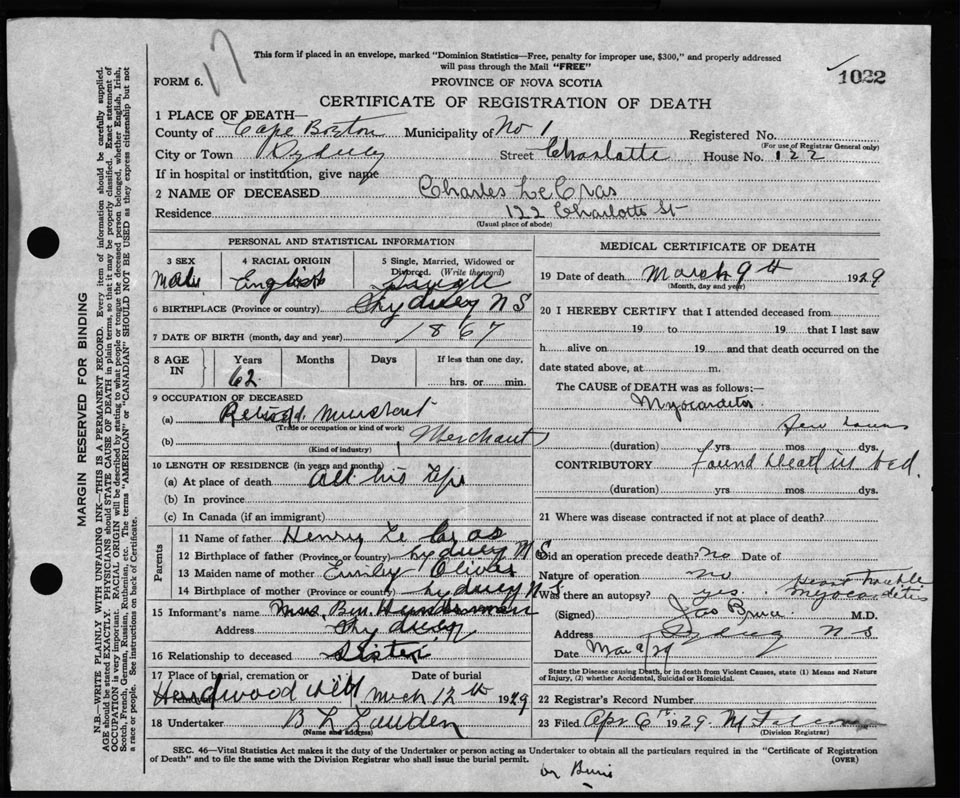 17
This form if placed in an envelope, marked "Dominion Statistics—Free, penalty for improper use, $300," and properly addressed
will pass through the Mail "FREE"
FORM 6.
PROVINCE OF NOVA SCOTIA
1022
CERTIFICATE OF REGISTRATION OF DEATH
1 PLACE OF DEATH—
County of Cape Breton Municipality of No 1 Registered No.
(For use of Registrar General only)
City or Town Sydney Street Charlotte House No. 122
If in hospital or institution, give name
2 NAME OF DECEASED Charles Le Cras
Residence 122 Charlotte St
(Usual place of abode)
PERSONAL AND STATISTICAL INFORMATION
3 SEX Male
4 RACIAL ORIGIN English
5 Single, Married, Widowed or Divorced. (Write the word) Single
6 BIRTHPLACE (Province or country) Sydney N S
7 DATE OF BIRTH (month, day and year) 1867
8 AGE IN Years Months Days If less than one day,
62 hrs. or min.
9 OCCUPATION OF DECEASED
(a) Retired Merchant
(Trade or occupation or kind of work)
(b) Merchant
(Kind of industry)
10 LENGTH OF RESIDENCE (in years and months)
(a) At place of death All his life
(b) In province
(c) In Canada (if an immigrant)
Parents
11 Name of father Henry Le Cras
12 Birthplace of father (Province or country) Sydney N S
13 Maiden name of mother Emily Oliver
14 Birthplace of mother (Province or country) Sydney N S
15 Informant's name Mrs.
Address Sydney
16 Relationship to deceased Sister
17 Place of burial, cremation or Date of burial
Hardwood Hill Mch 12th 1929
18 Undertaker B L
(Name and address)
MEDICAL CERTIFICATE OF DEATH
19 Date of death March 9th 1929
(Month, day and year)
20 I HEREBY CERTIFY that I attended deceased from
19 to 19 that I last saw
h alive on 19 and that death occurred on the
date stated above, at m.
The CAUSE OF DEATH was as follows:—
Myocarditis
few hours
(duration) yrs mos dys.
CONTRIBUTORY found dead in bed.
(duration) yrs mos dys.
21 Where was disease contracted if not at place of death?
Did an operation precede death? no Date of
Nature of operation no
Heart trouble
Was there an autopsy? yes. Myocarditis
(Signed) Jas Bruce M.D.
Address Sydney N S
Date Mar 9/29
State the Disease causing Death, or in death from Violent Causes, state (1) Means and Nature
of Injury, (2) whether Accidental, Suicidal or Homicidal.
22 Registrar's Record Number
23 Filed Apr 6th 1929
(Division Registrar)
SEC. 46—Vital Statistics Act makes it the duty of the Undertaker or person acting as Undertaker to obtain all the particulars required in the "Certificate of Registration
of Death" and to file the same with the Division Registrar who shall issue the burial permit.
(OVER)
MARGIN RESERVED FOR BINDING
N.B.—WRITE PLAINLY WITH UNFADING INK—THIS IS A PERMANENT RECORD. Every item of information should be carefully supplied.
AGE should be stated EXACTLY. PHYSICIANS should STATE CAUSE OF DEATH in plain terms, so that it may be properly classified. Exact statement of
OCCUPATION is very important. RACIAL ORIGIN will be described by stating to what people or tongue the deceased person belonged, whether English, Irish,
Scotch, French, German, Russian, Ruthenian, etc. The terms "AMERICAN" or "CANADIAN" SHOULD NOT BE USED as they express citizenship but not
a race or people. See instructions on back of Certificate.